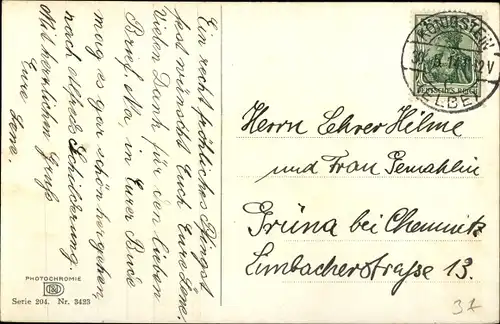 Ein recht fröhliches Pfingst
fest wünscht Euch Eure Lene.
Vielen Dank für den lieben
Brief. Na, in Eurer Bude
mag es gar schön hergehen,
nach Alfreds Schilderung.
Mit herzlichem Gruß
Eure
Lene.
KÖNIGSTEIN
ELBE
DEUTSCHES REICH
Herrn Lehrer Hilme
und Frau Gemahlin
Grüna bei Chemnitz
Limbacherstraße 13.
PHOTOCHROMIE
Serie 204. Nr. 3423